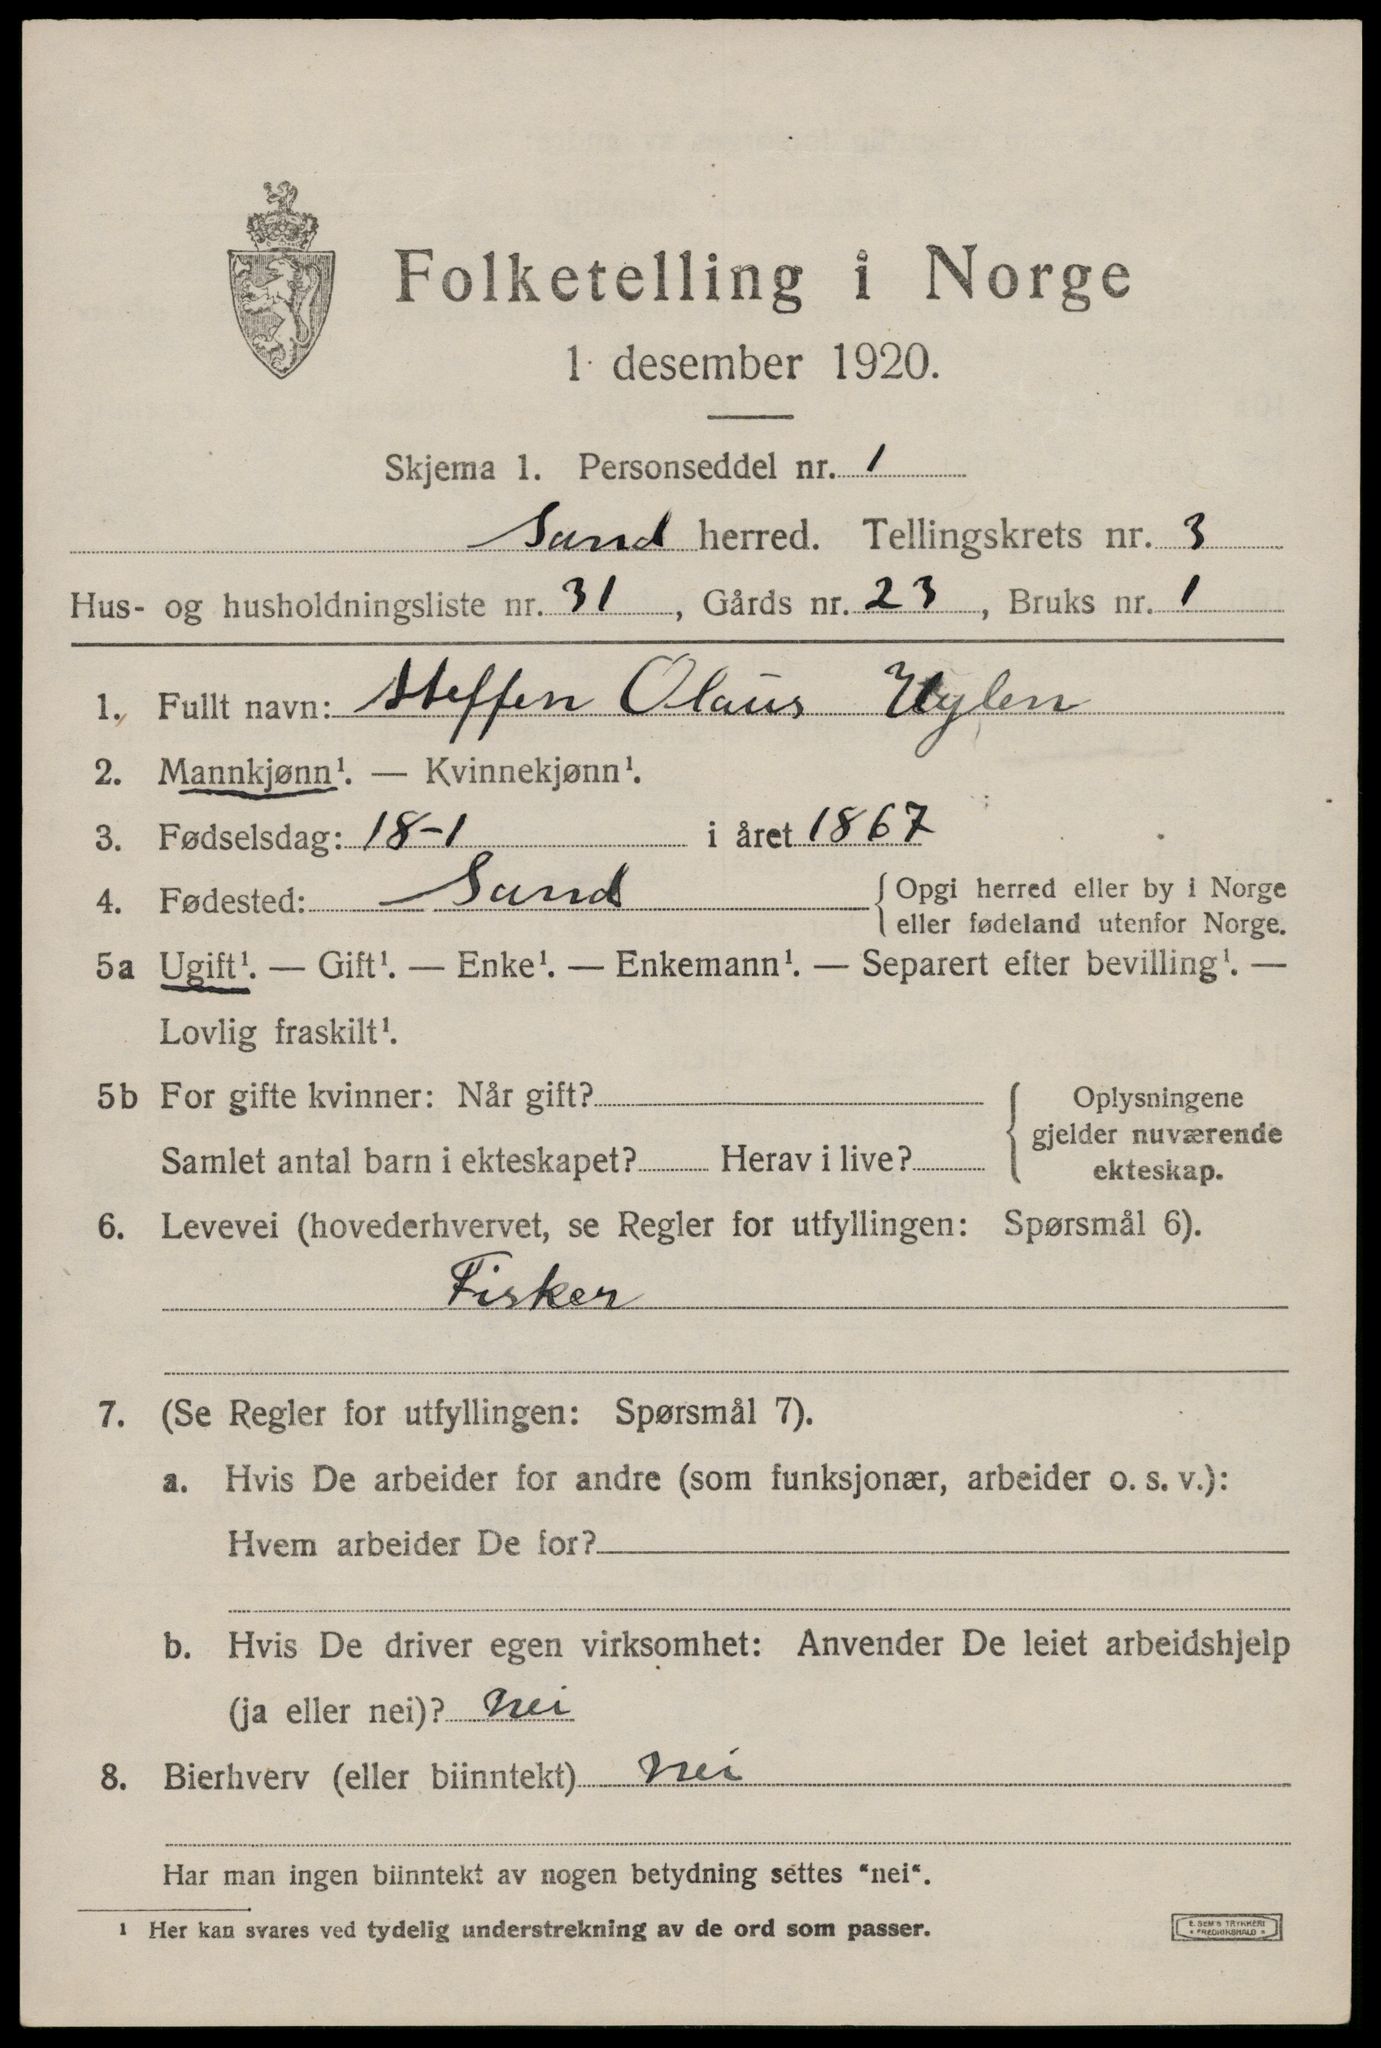 Folketelling i Norge
1 desember 1920.
Skjema 1. Personseddel nr. 1
Sand herred. Tellingskrets nr. 3
Hus- og husholdningsliste nr. 31, Gårds nr. 23, Bruks nr. 1
1. Fullt navn: Steffen Olaus
2. Mannkjønn¹. — Kvinnekjønn¹.
3. Fødselsdag: 18-1 i året 1867
4. Fødested: Sand { Opgi herred eller by i Norge
eller fødeland utenfor Norge.
5a Ugift¹. — Gift¹. — Enke¹. — Enkemann¹. — Separert efter bevilling¹. —
Lovlig fraskilt¹.
5b For gifte kvinner: Når gift?
Samlet antal barn i ekteskapet? Herav i live?
Oplysningene
gjelder nuværende
ekteskap.
6. Levevei (hovederhvervet, se Regler for utfyllingen: Spørsmål 6).
Fisker
7. (Se Regler for utfyllingen: Spørsmål 7).
a. Hvis De arbeider for andre (som funksjonær, arbeider o. s. v.):
Hvem arbeider De for?
b. Hvis De driver egen virksomhet: Anvender De leiet arbeidshjelp
(ja eller nei)? nei
8. Bierhverv (eller biinntekt) nei
Har man ingen biinntekt av nogen betydning settes “nei“.
¹ Her kan svares ved tydelig understrekning av de ord som passer.
E. SEM'S TRYKKERI
FREDRIKSHALD